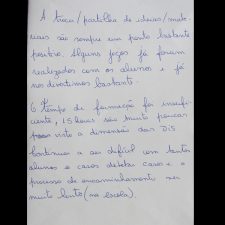 A troca/partilha de ideias/mate-
riais são sempre um ponto bastante
positivo. Alguns jogos já foram
realizados com os alunos e já
nos divertimos bastante.
O tempo de formação foi insufi-
ciente, 15 horas são muito poucas
visto a dimensão das DIS
Continua a ser difícil com tantos
alunos e casos detetar casos e o
processo de encaminhamento ser
muito lento (na escola).